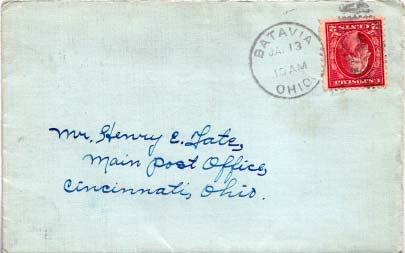 BATAVIA
JA. 13
10 AM
OHIO
CENTS
U.S. POSTAGE
Mr. Henry E. Tate,
Main Post Office,
Cincinnati, Ohio.